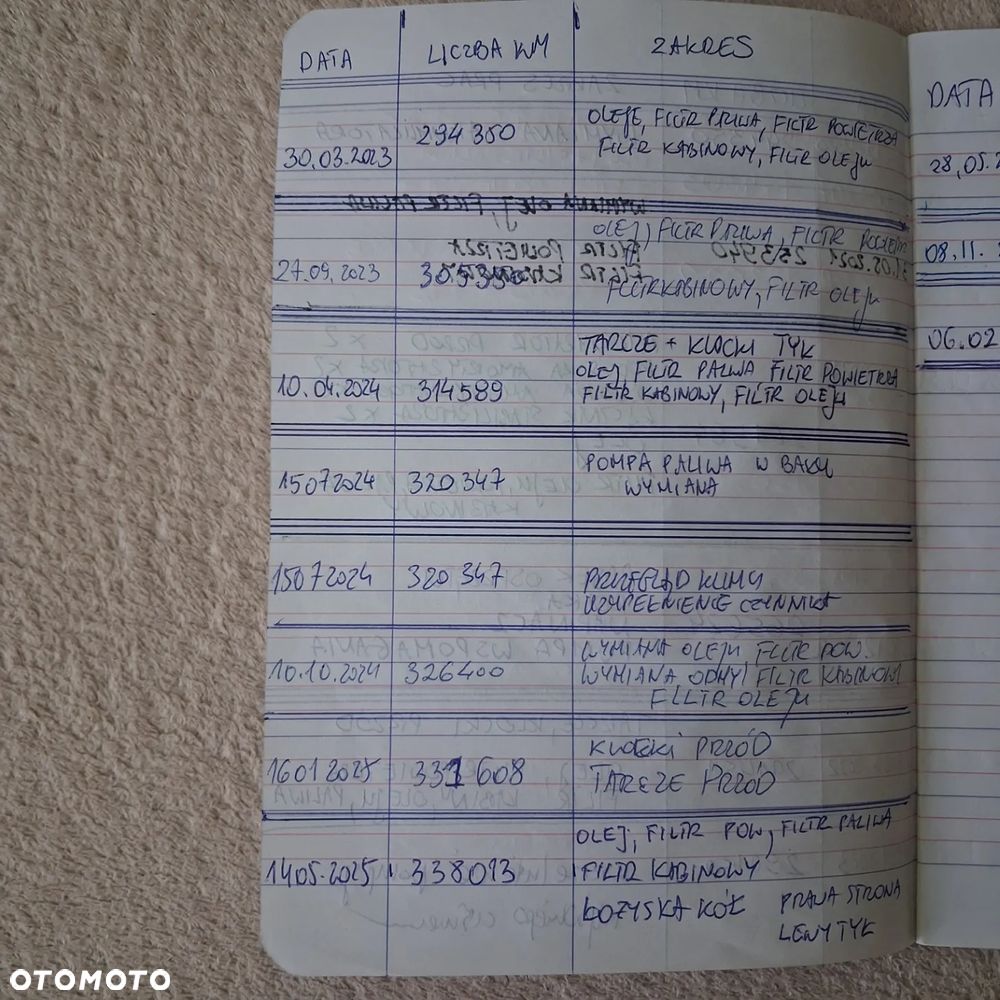 DATA LICZBA KM ZAKRES
OLEJE, FILTR PALIWA, FILTR POWIETRZA
294 350
30.03.2023 FILTR KABINOWY, FILTR OLEJU
OLEJ, FILTR PALIWA, FILTR POWIETRZA
27.09.2023
FILTR KABINOWY, FILTR OLEJU
TARCZE + KLOCKI TYŁ
OLEJ, FILTR PALIWA, FILTR POWIETRZA
10.04.2024 314589 FILTR KABINOWY, FILTR OLEJU
POMPA PALIWA W BAKU
15072024 320347 WYMIANA
15072024 320 347 PRZEGLĄD KLIMY
UZUPEŁNIENIE CZYNNIKA
WYMIANA OLEJU FILTR POW.
10.10.2024 326400 WYMIANA ODMY, FILTR KABINOWY
FILTR OLEJU
KLOCKI PRZÓD
16012025 331 608 TARCZE PRZÓD
OLEJ, FILTR POW, FILTR PALIWA
1405.2025 338013 FILTR KABINOWY
ŁOŻYSKA KÓŁ PRAWA STRONA
LEWY TYŁ
DATA
28,05.2
08.11.
06.02
OTOMOTO